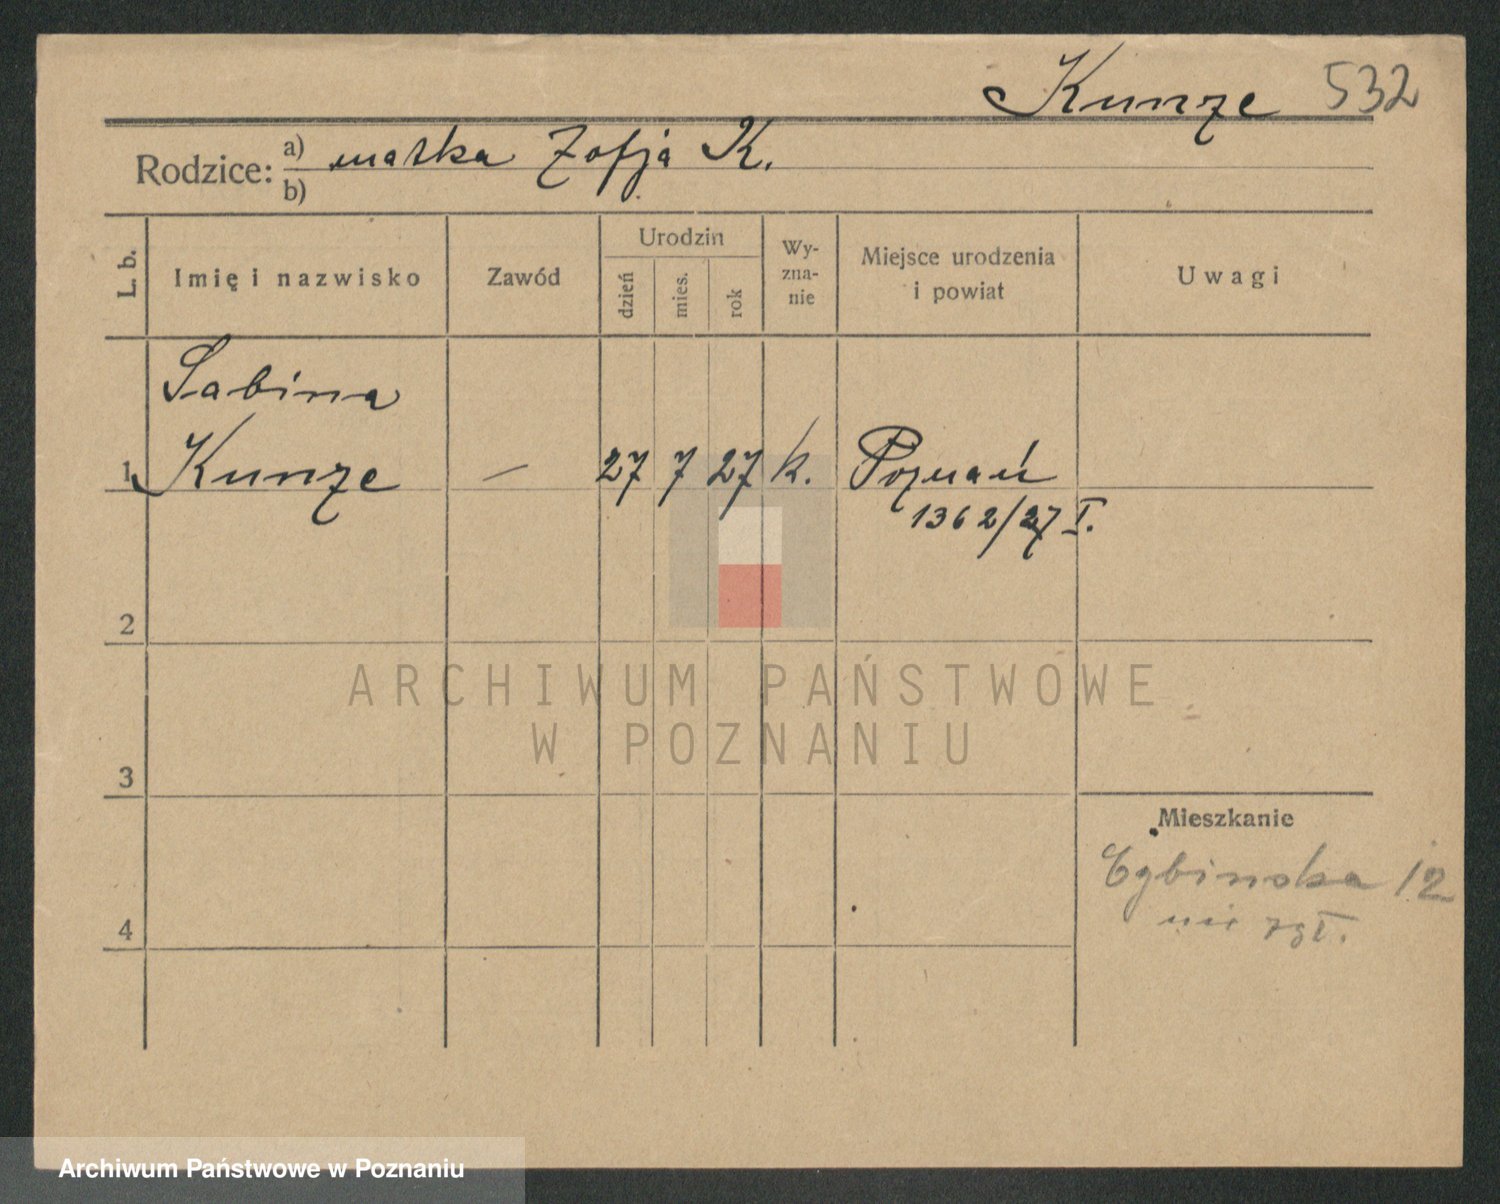 Kunze 532
Rodzice: a) matka Zofja K.
b)
L. b. Imię i nazwisko Zawód Urodzin dzień mies. rok Wy-zna-nie Miejsce urodzenia i powiat Uwagi
Sabina
1 Kunze — 27 7 27 k. Poznań
1362/27 I.
2
ARCHIWUM PAŃSTWOWE
W POZNANIU
3
Mieszkanie
12
nie zgł.
4
Archiwum Państwowe w Poznaniu